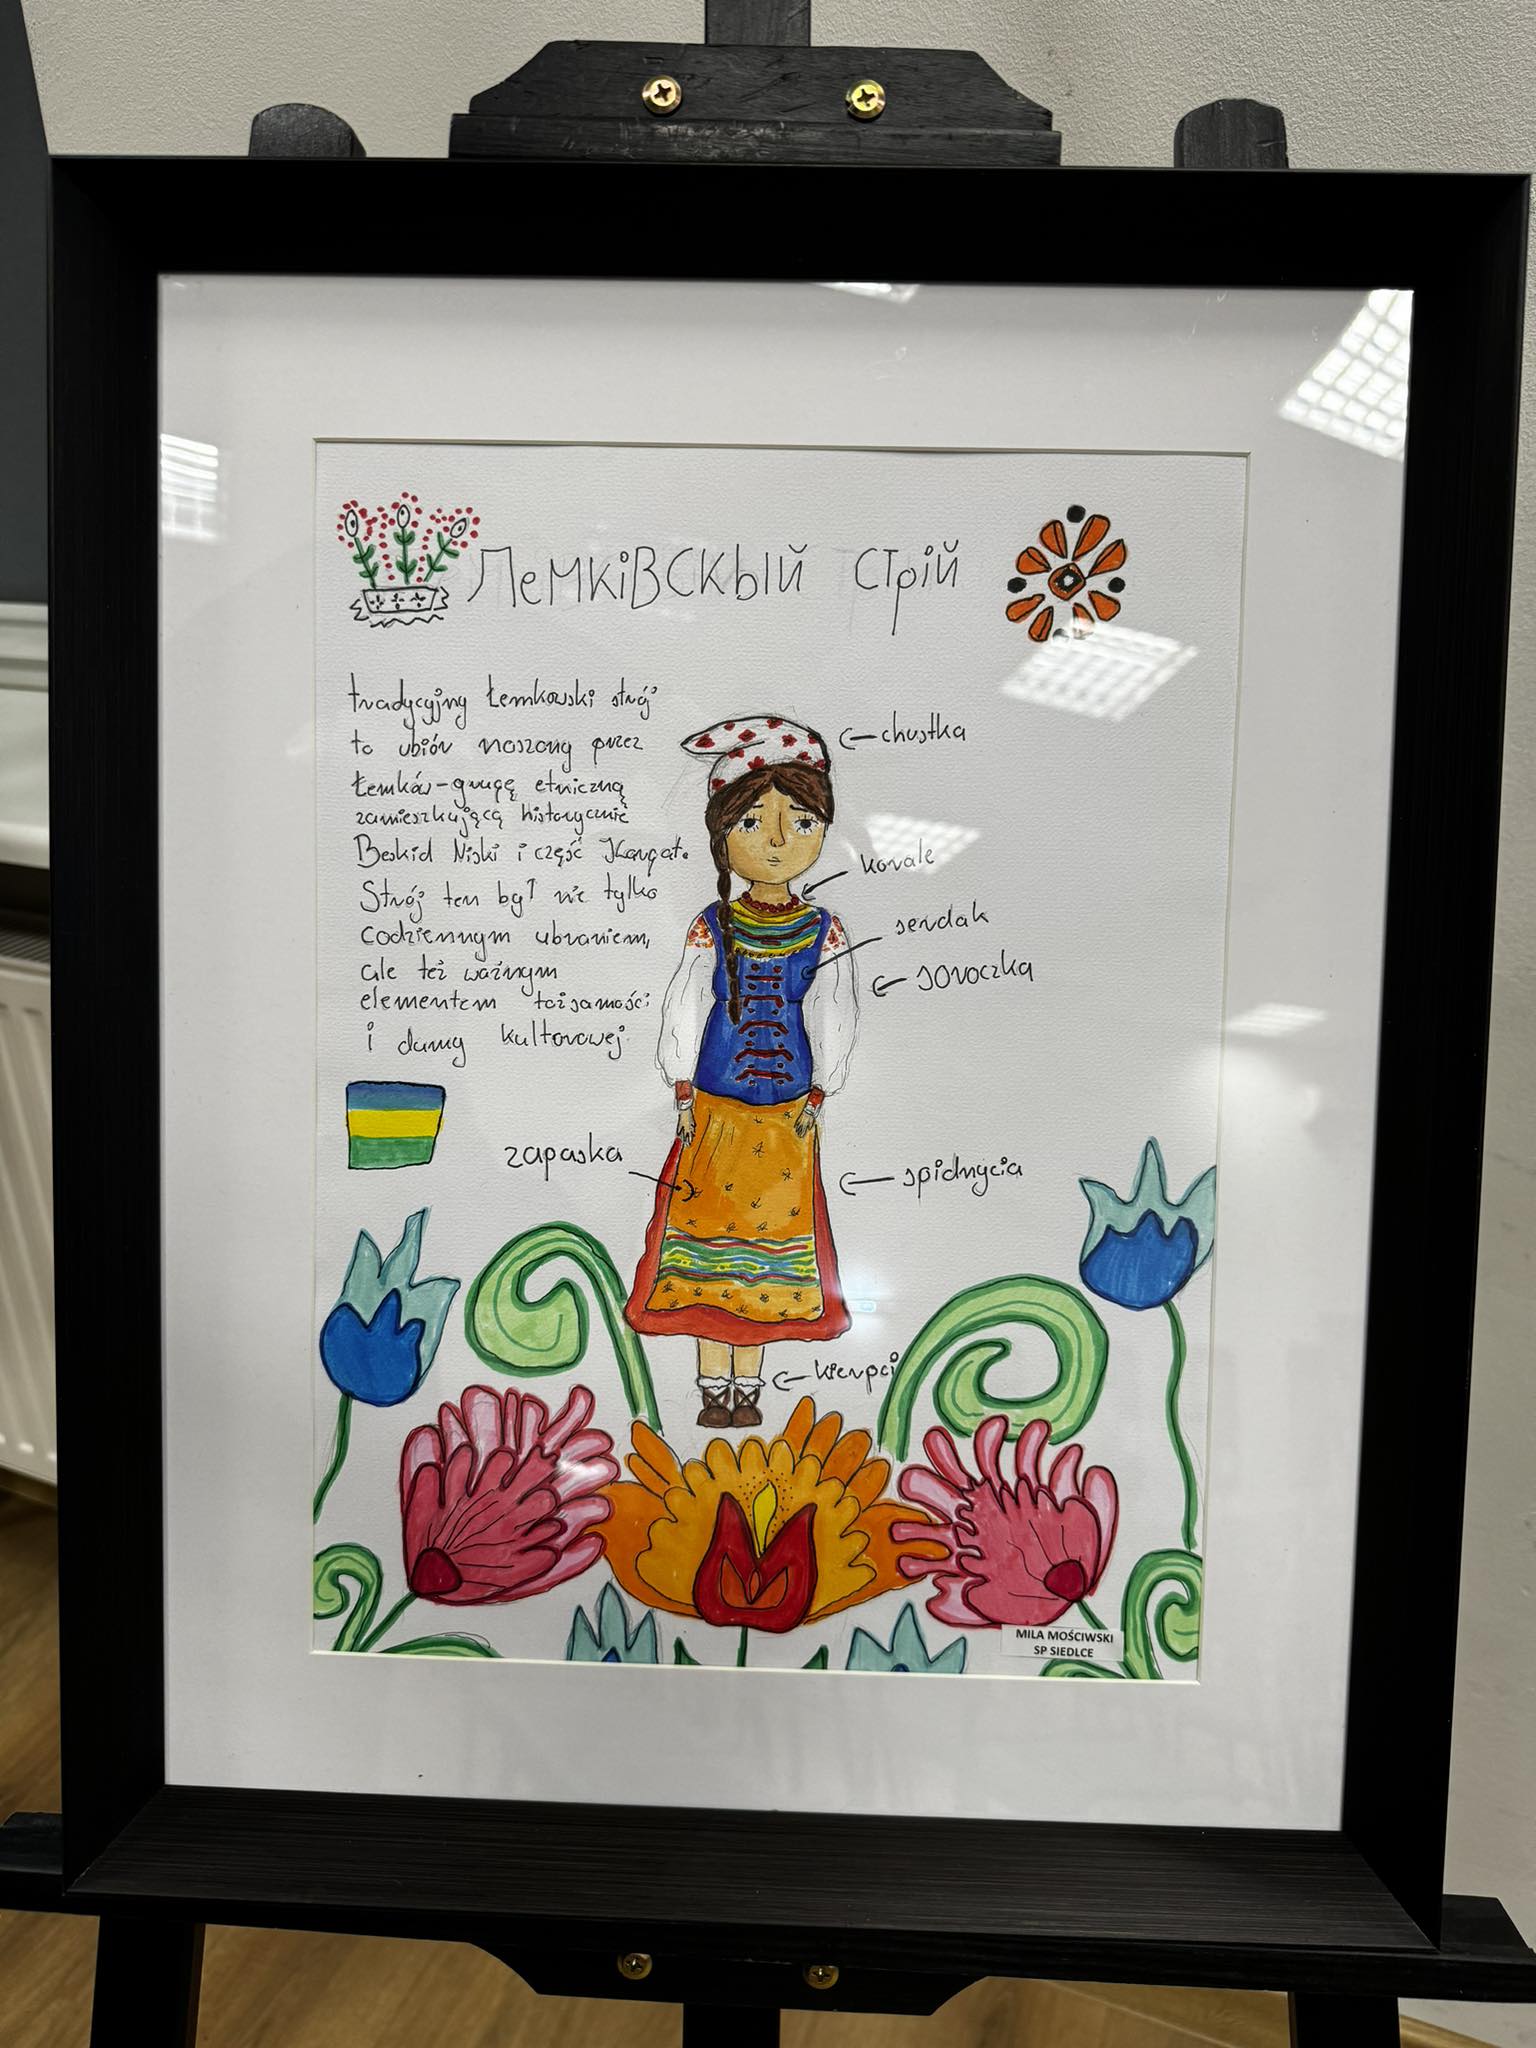 Лемківскый стрій
tradycyjny łemkowski strój
to ubiór noszony przez
Łemków - grupę etniczną
zamieszkującą historycznie
Beskid Niski i część Karpat.
Strój ten był nie tylko
codziennym ubraniem,
ale też ważnym
elementem tożsamości
i dumy kulturowej.
chustka
korale
serdak
soroczka
zapaska
spidnycia
kierpci
MILA MOŚCIWSKI
SP SIEDLCE